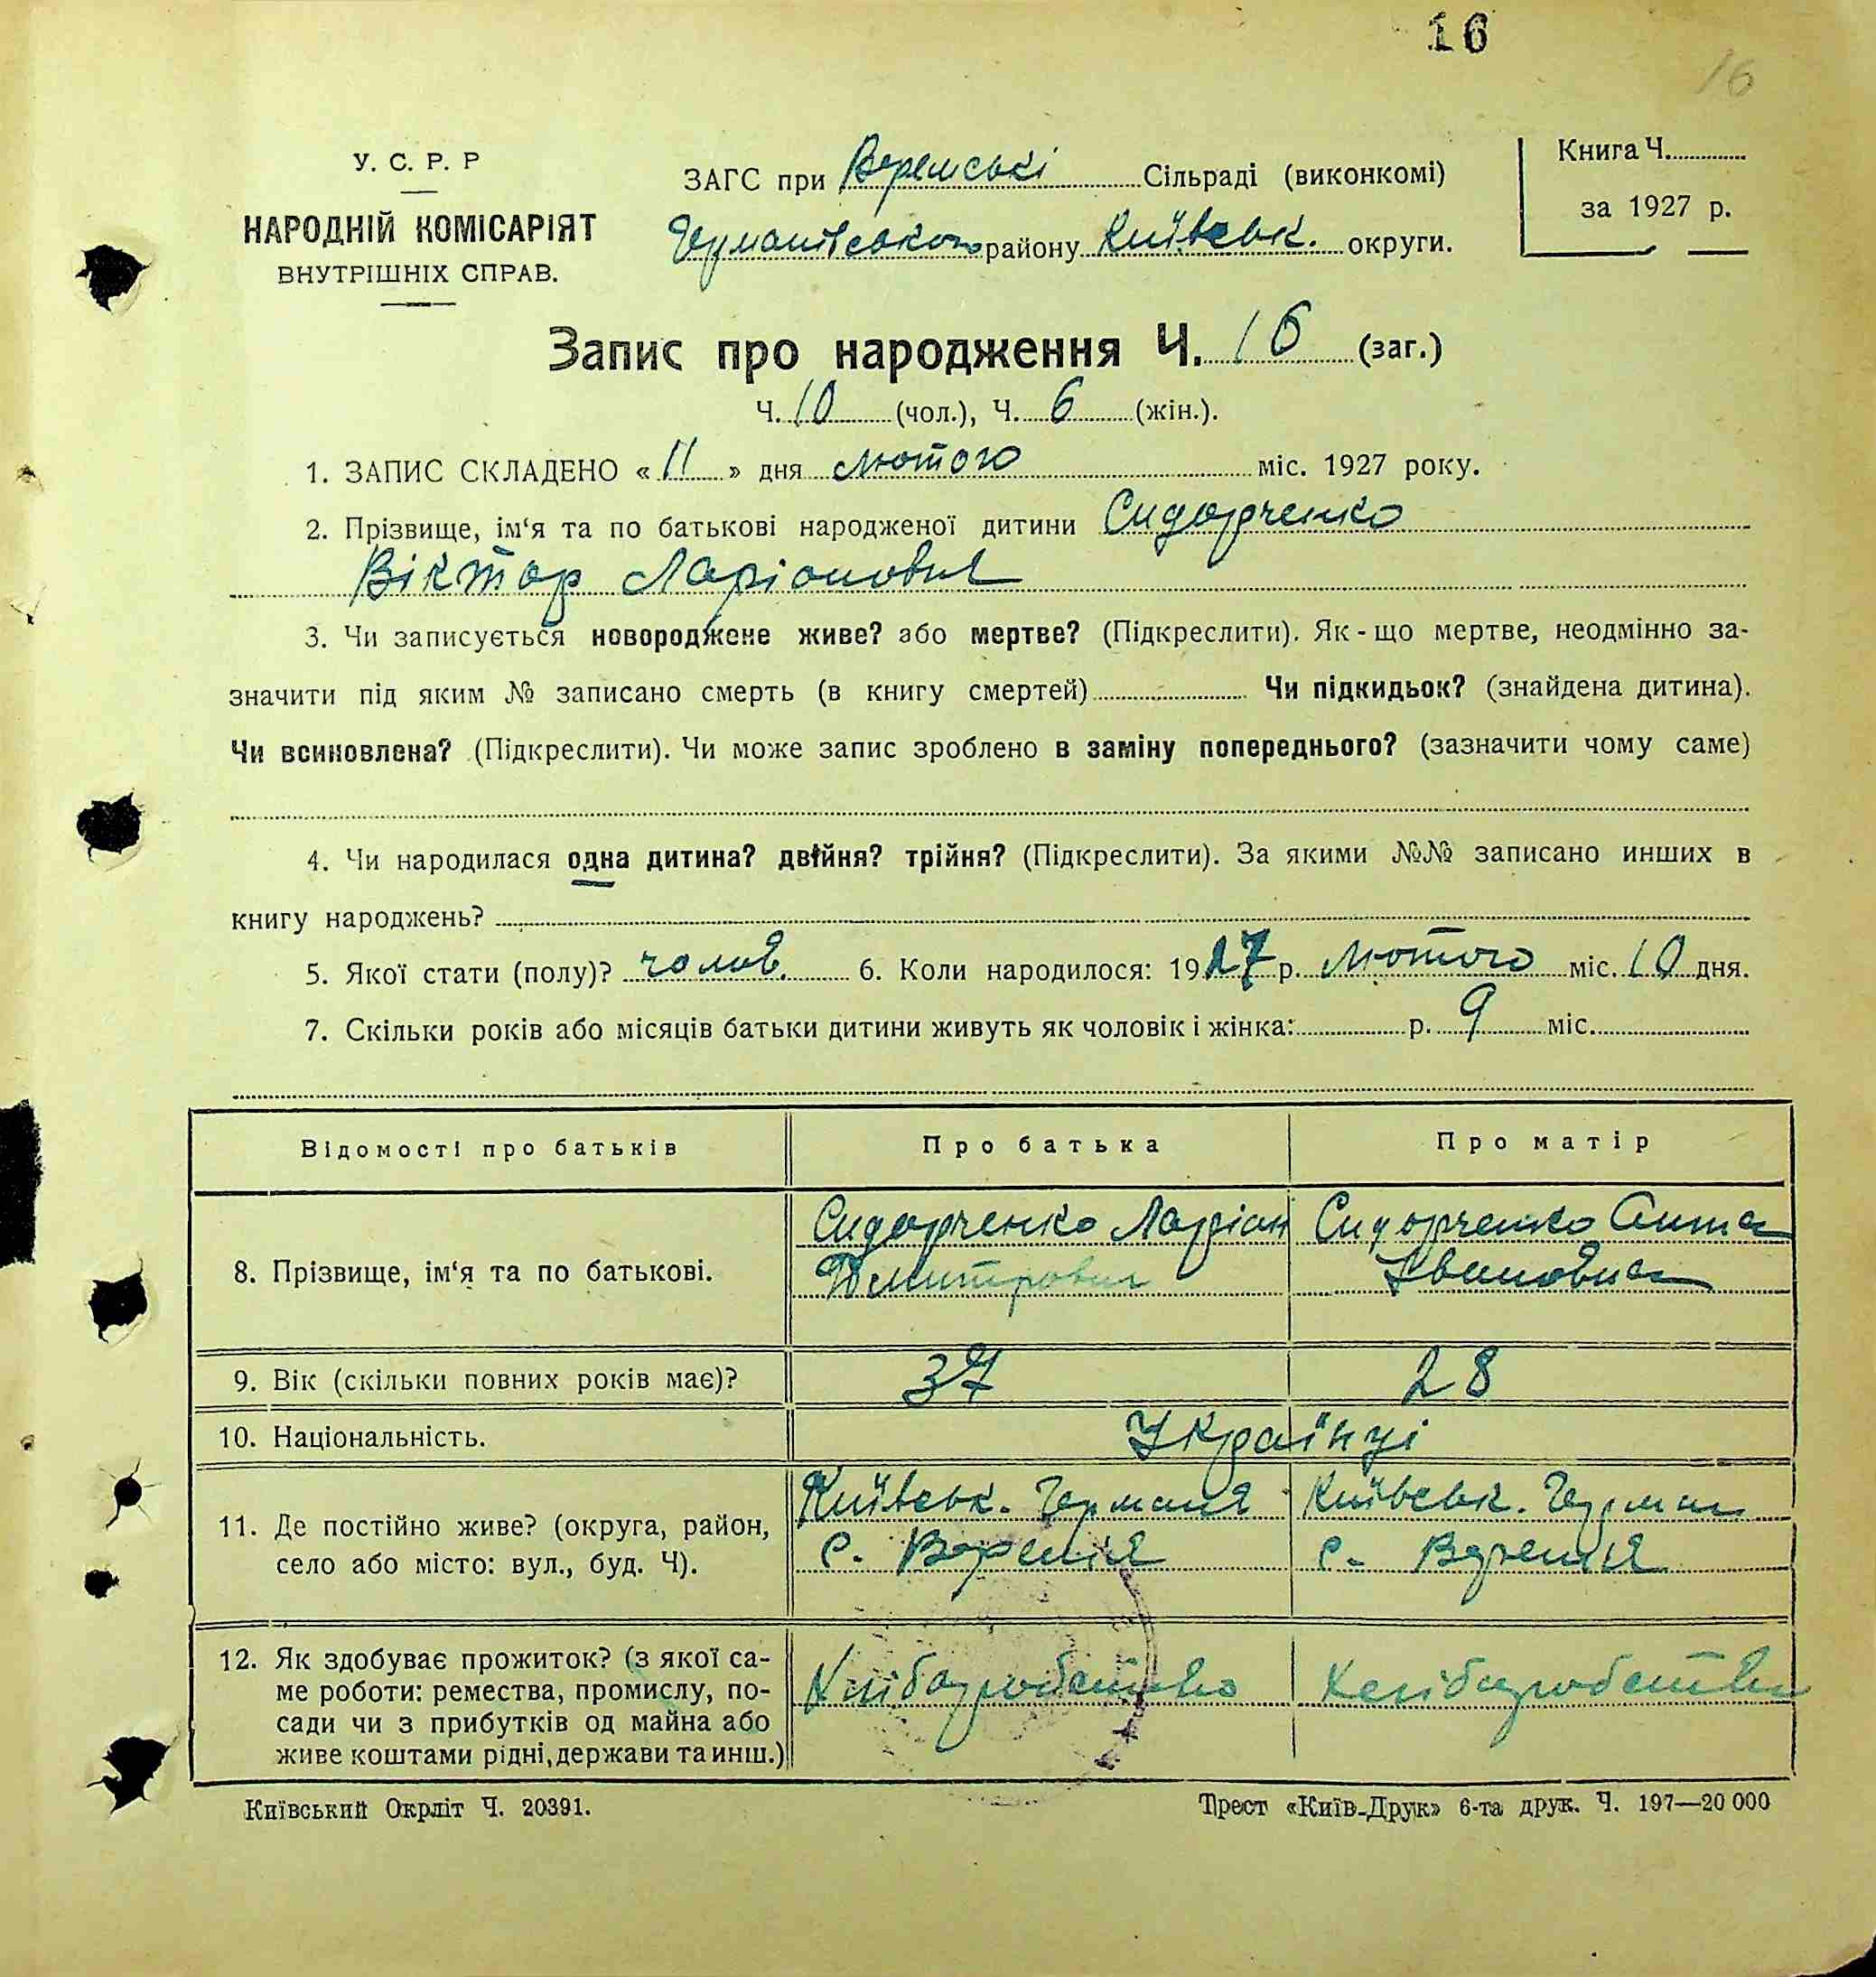 16
16
У. С. Р. Р
НАРОДНІЙ КОМІСАРІЯТ
ВНУТРІШНІХ СПРАВ.
ЗАГС при Веремські Сільраді (виконкомі)
Германівського району Київськ. округи.
Книга Ч.
за 1927 р.
Запис про народження Ч. 16 (заг.)
Ч. 10 (чол.), Ч. 6 (жін.).
1. ЗАПИС СКЛАДЕНО «11» дня лютого міс. 1927 року.
2. Прізвище, ім‘я та по батькові народженої дитини Сидорченко
Віктор Ларіонович
3. Чи записується новороджене живе? або мертве? (Підкреслити). Як-що мертве, неодмінно за-
значити під яким № записано смерть (в книгу смертей) Чи підкидьок? (знайдена дитина).
Чи всиновлена? (Підкреслити). Чи може запис зроблено в заміну попереднього? (зазначити чому саме)
4. Чи народилася одна дитина? двійня? трійня? (Підкреслити). За якими №№ записано инших в
книгу народжень?
5. Якої стати (полу)? чолов. 6. Коли народилося: 1927 р. Лютого міс. 10 дня.
7. Скільки років або місяців батьки дитини живуть як чоловік і жінка: р. 9 міс.
Відомості про батьків Про батька Про матір
8. Прізвище, ім‘я та по батькові.
Сидорченко Ларіон
Дмитрович
Сидорченко Анна
Івановна
9. Вік (скільки повних років має)? 37 28
10. Національність. Українці
11. Де постійно живе? (округа, район,
село або місто: вул., буд. Ч).
Київськ.
с. Веремія
Київськ.
с. Веремія
12. Як здобуває прожиток? (з якої са-
ме роботи: ремества, промислу, по-
сади чи з прибутків од майна або
живе коштами рідні, держави та инш.)
Хлібаробство
Хлібаробство
Київський Окрліт Ч. 20391.
Трест «Київ-Друк» 6-та друк. Ч. 197—20 000